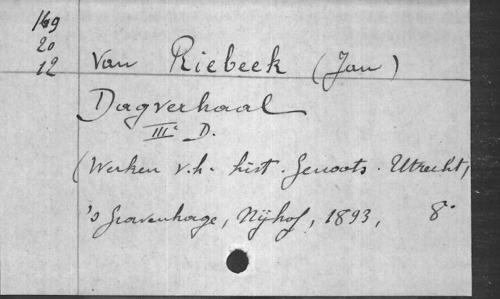 169
20
12
Van Riebeek (Jan)
Dagverhaal
IIIᵉ D.
(Werken v.h. hist. Genoots. Utrecht,
's Gravenhage, Nijhof, 1893, 8°